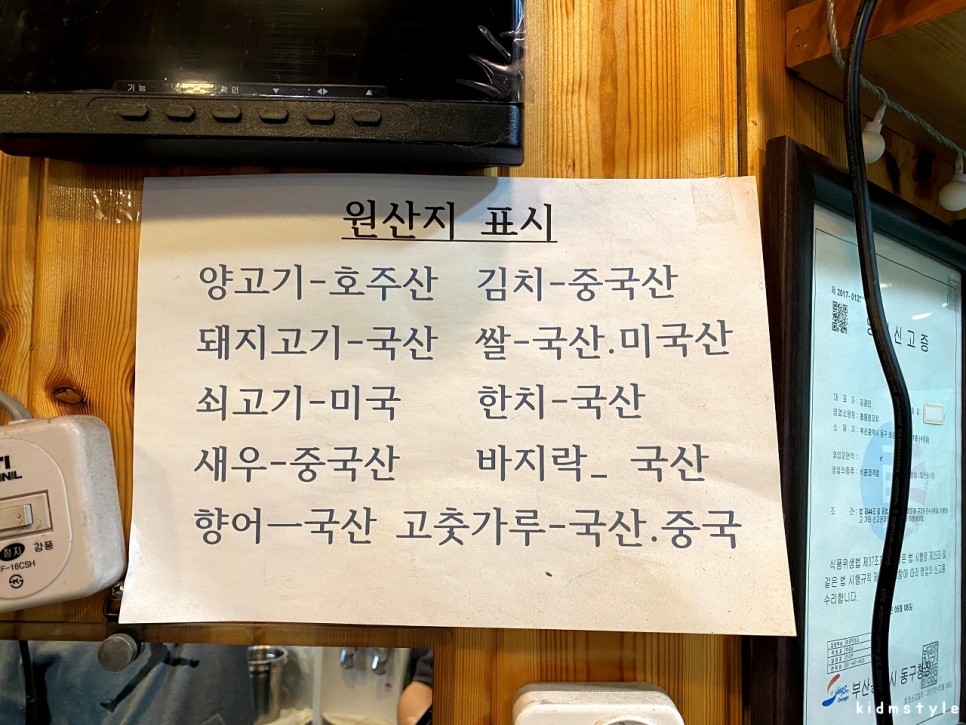 기능
확인
원산지 표시
양고기-호주산 김치-중국산
돼지고기-국산 쌀-국산.미국산
쇠고기-미국 한치-국산
새우-중국산 바지락_ 국산
향어ㅡ국산 고춧가루-국산.중국
정지 강풍
F-16CSH
신고증
대표자
소재지
조건
식품위생법 제37조
같은 법 시행규칙
수리합니다.
동구청장
kidmstyle